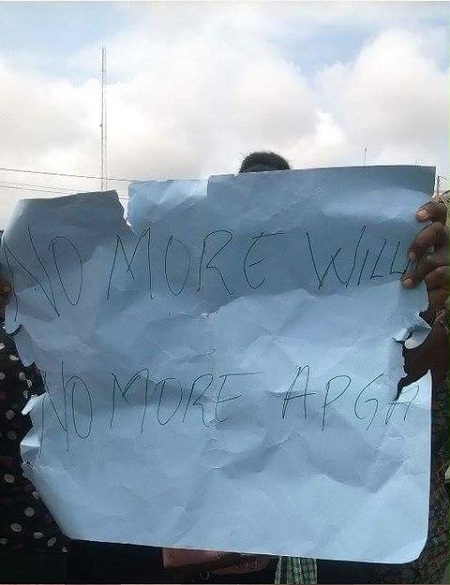 NO MORE WILL
NO MORE APGA